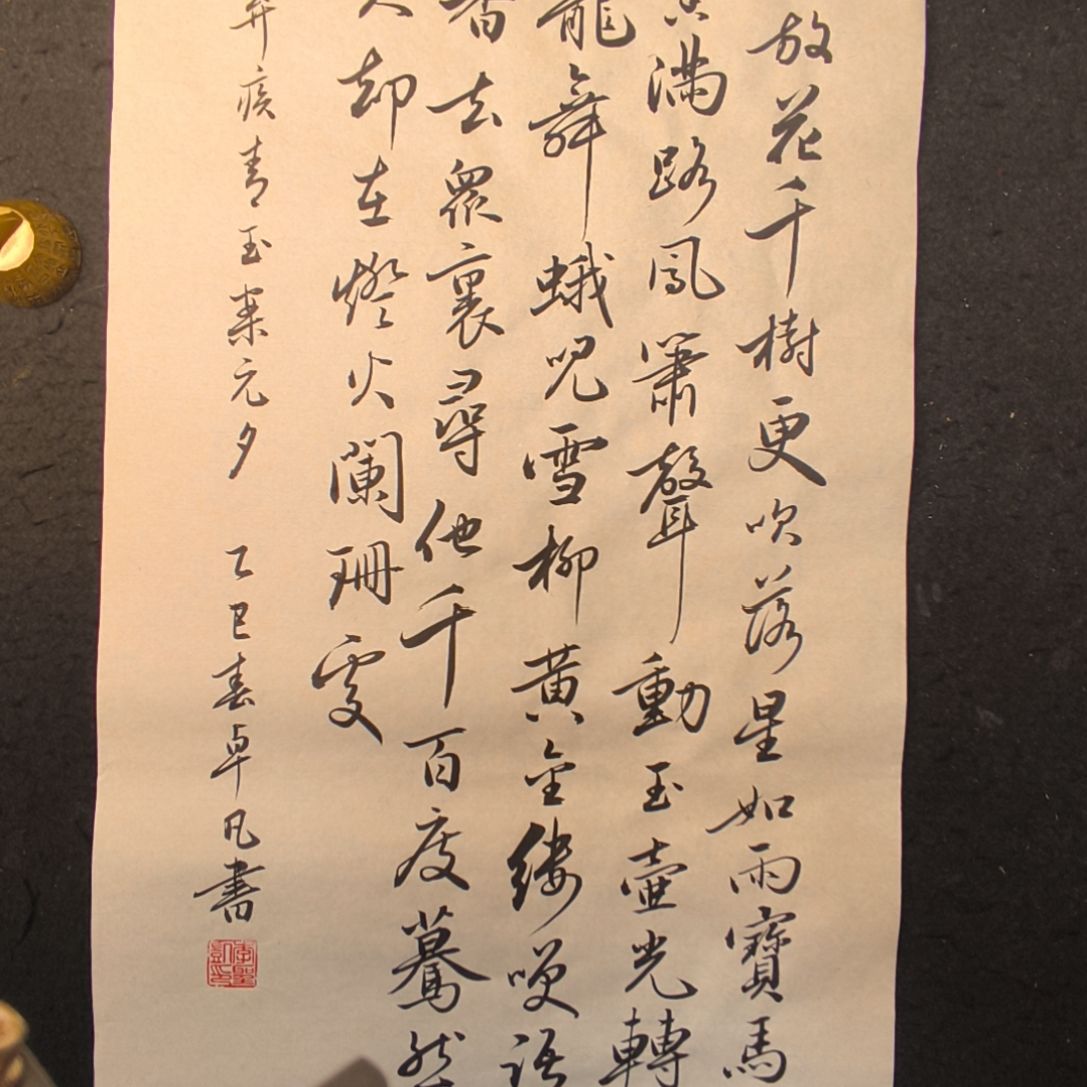 放花千樹更吹落星如雨寶馬
滿路鳳簫聲動玉壺光轉
龍舞蛾兒雪柳黃金縷笑語
香去眾裏尋他千百度驀然
却在燈火闌珊處
棄疾青玉案元夕 乙巳春卓凡書